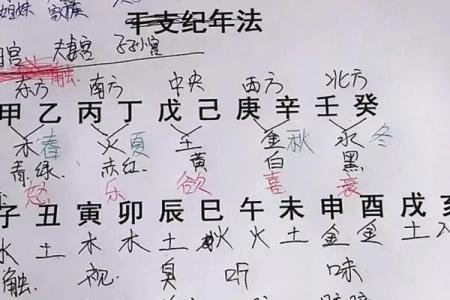 姐妹
干支纪年法
宫 夫妻宫 子小宫
触
东方 南方 中央 西方 北方
甲乙丙丁戊己庚辛壬癸
木 春 火 夏 土 金 秋 水 冬
青.绿 赤红 黄 白 黑
怒 乐 欲 喜 哀
子丑寅卯辰巳午未申酉戌亥
水 土 木 木 土 火 火 土 金 金 土
触 视 臭 听 味